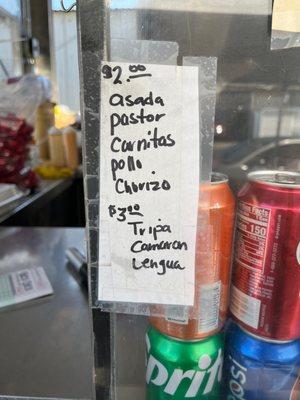 $2.00
asada
pastor
Carnitas
pollo
Chorizo
$3.00
Tripa
Camaron
Lengua
150
Sprite
pepsi